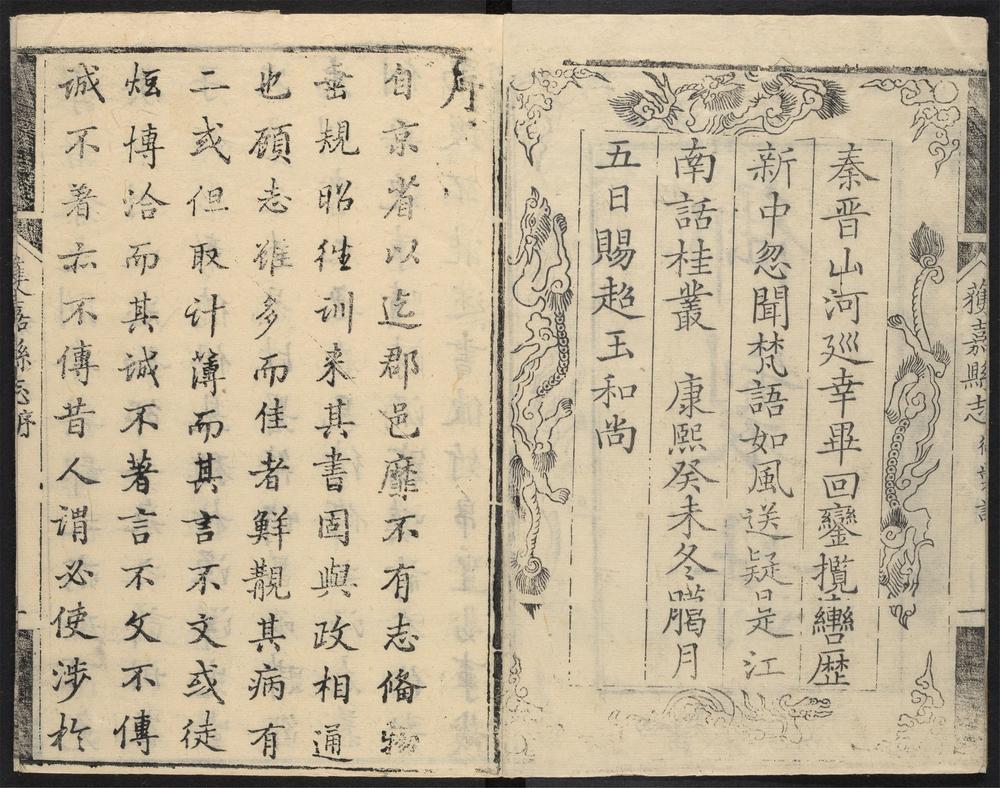 獲嘉縣志
一
秦晋山河廵幸畢回鑾攬轡歴
新中忽聞梵語如風送疑是江
南話桂叢　康熙癸未冬臘月
五日賜超玉和尚
序
自京省以迄郡邑靡不有志俻物
垂規昭徃訓来其書固與政相通
也顧志雖多而佳者鮮觏其病有
二或但取计薄而其言不文或徒
炫博洽而其誠不著言不文不傳
誠不著亦不傳昔人谓必使涉於
嘉縣志序
一